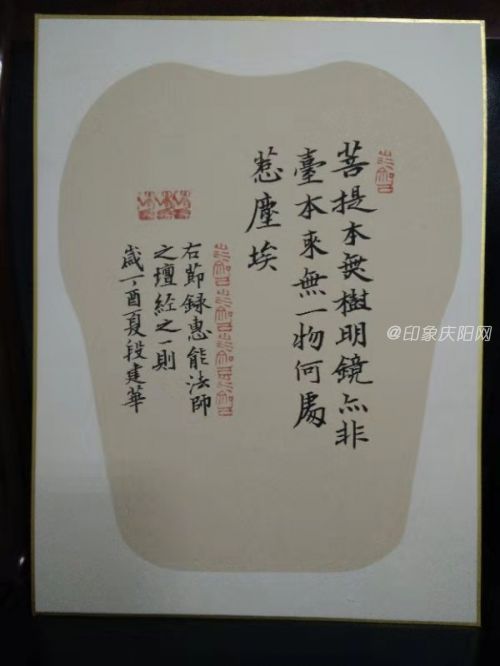 菩提本無樹明鏡亦非
臺本来無一物何處
惹塵埃
右節録惠能法師
之壇經之一則
歲丁酉夏段建華
@印象庆阳网